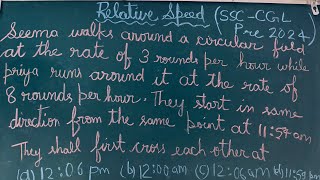 Relative Speed (SSC-CGL
Pre 2024)
Seema walks around a circular field
at the rate of 3 rounds per hour while
priya runs around it at the rate of
8 rounds per hour. They start in same
direction from the same point at 11:54 am
They shall first cross each other at
(a) 12:06 pm (b) 12:00 am (c) 12:06 am (d) 11:59 am